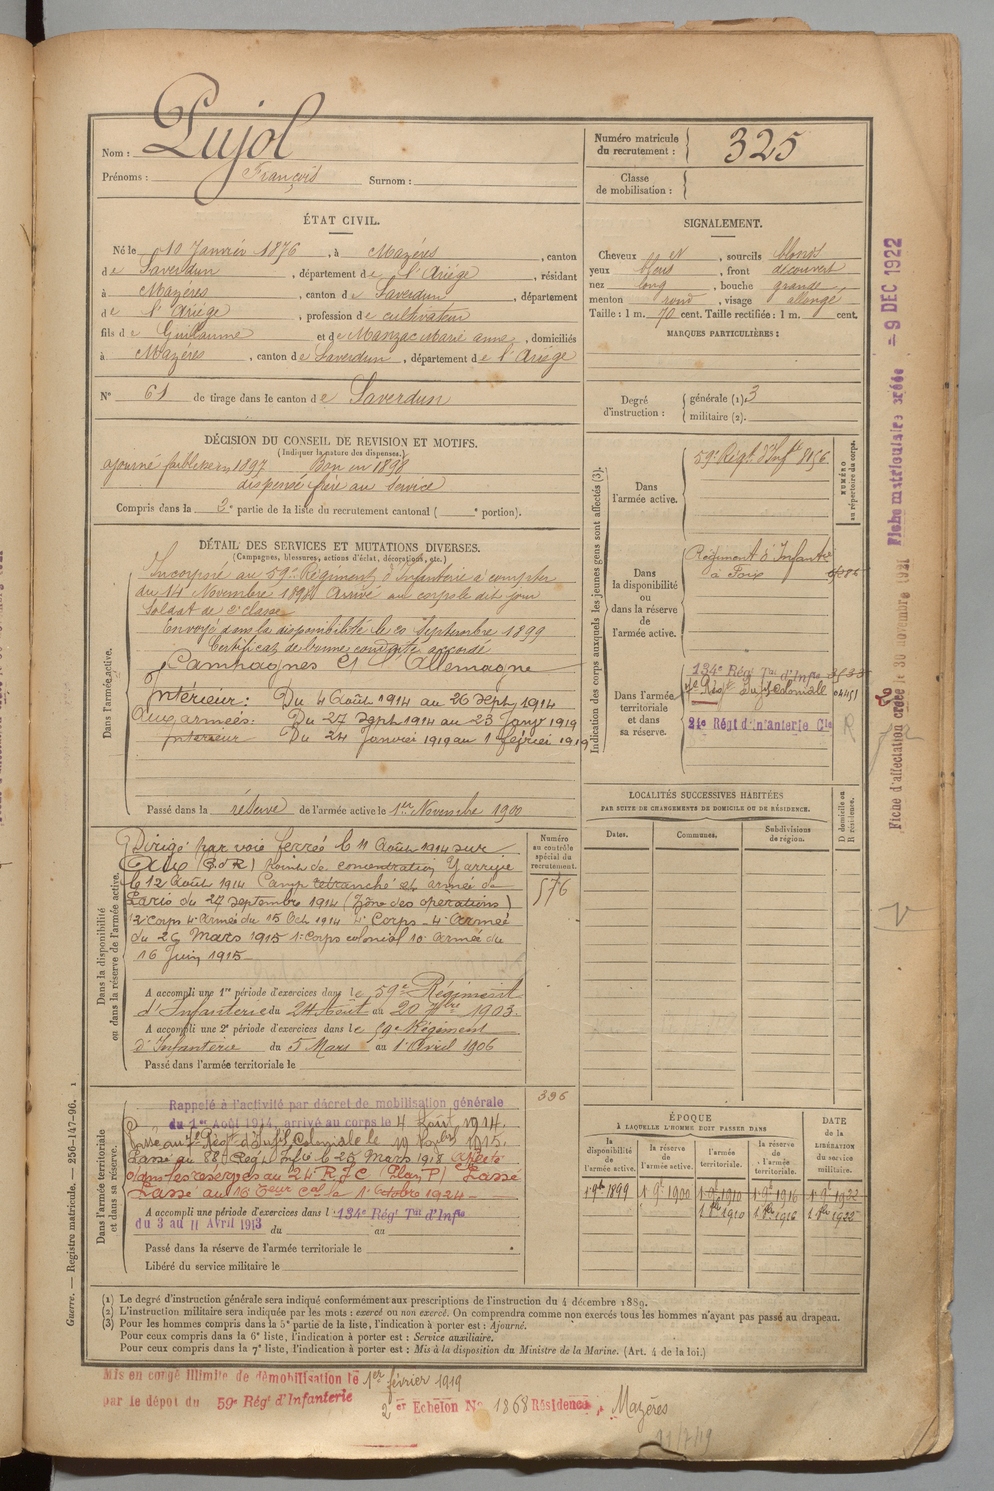 Nom : Pujol
Prénoms : François Surnom :
Numéro matricule
du recrutement : 325
Classe
de mobilisation :
ÉTAT CIVIL.
Né le 10 Janvier 1876, à Mazères, canton
de Saverdun, département de l'Ariège, résidant
à Mazères, canton de Saverdun, département
de l'Ariège, profession de cultivateur
fils de Guillaume et de Manzac Marie anne, domiciliés
à Mazères, canton de Saverdun, département de l'Ariège
N° 61 de tirage dans le canton de Saverdun
SIGNALEMENT.
Cheveux et N, sourcils blonds
yeux bleus, front découvert
nez long, bouche grande
menton rond, visage allongé
Taille : 1 m. 70 cent. Taille rectifiée : 1 m. cent.
MARQUES PARTICULIÈRES :
Degré
d'instruction :
générale (1). 3
militaire (2).
DÉCISION DU CONSEIL DE REVISION ET MOTIFS.
(Indiquer la nature des dispenses.)
ajourné faiblesse en 1897 Bon en 1898
dispensé frère au Service
Compris dans la 3e partie de la liste du recrutement cantonal ( e portion).
DÉTAIL DES SERVICES ET MUTATIONS DIVERSES.
(Campagnes, blessures, actions d'éclat, décorations, etc.)
Dans l'armée active.
Incorporé au 59e Régiment d'Infanterie à compter
du 14 Novembre 1898 Arrivé au corps le dit jour
Soldat de 2e classe
Envoyé dans la disponibilité le 20 Septembre 1899
Certificat de bonne conduite accordé
Campagnes Ct l'Allemagne
Intérieur : Du 4 Août 1914 au 26 Sept 1914
Aux armées : Du 27 Sept 1914 au 23 Janvr 1919
Intérieur Du 24 Janvier 1919 au 1 février 1919
Passé dans la réserve de l'armée active le 1er Novembre 1900
Indication des corps auxquels les jeunes gens sont affectés (3).
NUMÉRO
au répertoire du corps.
Dans
l'armée active.
59e Régt. d'Infte 8156
Dans
la disponibilité
ou
dans la réserve
de
l'armée active.
Régiment d'Infantie
à Foix
Dans l'armée
territoriale
et dans
sa réserve.
134e Régt Tal d'Infie
7e Régt Inf Coloniale 04451
21e Régt d'Infanterie Cle R
LOCALITÉS SUCCESSIVES HABITÉES
PAR SUITE DE CHANGEMENTS DE DOMICILE OU DE RÉSIDENCE.
Dates.
Communes.
Subdivisions
de région.
D domicile ou
R résidence.
Dans la disponibilité
ou dans la réserve de l'armée active.
Numéro
au contrôle
spécial du
recrutement.
576
Dirigé par voie ferrée le 11 Août 1914 sur
point de concentration Y arrivé
le 12 Août 1914 Camp retranché et armée de
Paris du 27 septembre 1914 (Zône des opérations)
2 corps 4e Armée du 15 Oct 1914 4e Corps 4e Armée
du 26 Mars 1915 1e Corps colonial 10e Armée du
16 Juin 1915
A accompli une 1re période d'exercices dans le 59e Régiment
d'Infanterie du 24 Août au 20 7bre 1903
A accompli une 2e période d'exercices dans le 59e Régiment
d'Infanterie du 5 Mars au 1er Avril 1906
Passé dans l'armée territoriale le
Dans l'armée territoriale
et dans sa réserve.
396
Rappelé à l'activité par décret de mobilisation générale
du 1er Août 1914, arrivé au corps le 4 Août 1914.
Passé au 7e Régt d'Infie Coloniale le
Passé au 88e Régt Infie le 25 Mars 1918 Affecté
dans les réserves au 24e R.I.C (Plan P) Passé
Passé au 16 le 1er Octobre 1924
A accompli une période d'exercices dans le 134e Régt Tal d'Infie
du 3 au 11 Avril 1913 du au
Passé dans la réserve de l'armée territoriale le
Libéré du service militaire le
ÉPOQUE
À LAQUELLE L'HOMME DOIT PASSER DANS
DATE
de la
LIBÉRATION
DU SERVICE
militaire.
la
disponibilité
de
l'armée active.
la réserve
de
l'armée active.
l'armée
territoriale.
la réserve
de
l'armée
territoriale.
1er 9bre 1899 1er 9bre 1900 1er 9bre 1910 1er 9bre 1916 1er 9bre 1922
(1) Le degré d'instruction générale sera indiqué conformément aux prescriptions de l'instruction du 4 décembre 1889.
(2) L'instruction militaire sera indiquée par les mots : exercé ou non exercé. On comprendra comme non exercés tous les hommes n'ayant pas passé au drapeau.
(3) Pour les hommes compris dans la 5e partie de la liste, l'indication à porter est : Ajourné.
Pour ceux compris dans la 6e liste, l'indication à porter est : Service auxiliaire.
Pour ceux compris dans la 7e liste, l'indication à porter est : Mis à la disposition du Ministre de la Marine. (Art. 4 de la loi.)
Mis en congé illimité de démobilisation le 1er février 1919
par le dépôt du 59e Régt d'Infanterie
2er Echelon No 1868 Résidence, Mazères
11/7/19
Guerre. — Registre matricule. — 256-147-96. 1
Fiche d'affectation créée le 30 novembre 1921 Fiche matriculaire créée — 9 DEC 1922